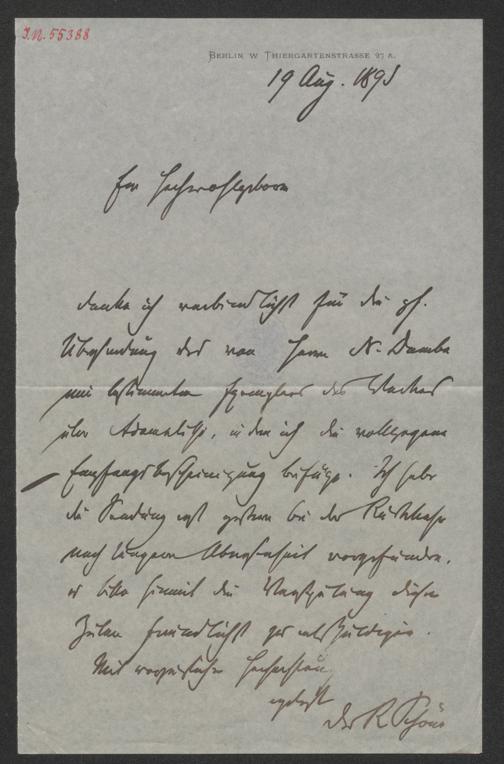 I.N. 55388
BERLIN W THIERGARTENSTRASSE 27 A.
19 Aug. 1895
Ew Hochwohlgeboren
danke ich verbindlichst für die gf.
Übersendung des von Herrn N. Dumba
mir bestimmten Exemplars des Werkes
über Adamklissi, indem ich die vollzogene
Empfangsbescheinigung beifüge. Ich habe
die Sendung erst gestern bei der Rückkehr
nach längerer Abwesenheit vorgefunden,
u bitte hiermit die Verspätung dieser
Zeilen freundlichst zu entschuldigen.
Mit vorzüglicher Hochachtung
ergebenst
Dr R Schöne